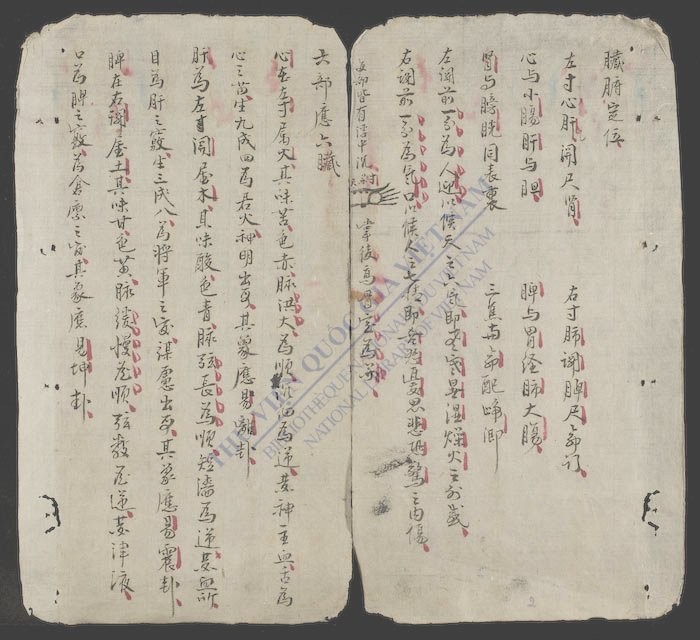 臟腑定位
左寸心肝關尺腎　右寸肺關脾尺命門
心与小腸肝与胆　脾与胃經肺大腸
腎与膀胱同表裏　三焦与命配
左關前一分為人迎以候天之六氣即冬寒暑濕燥火之外感
右關前一分為氣口以候人之七情即喜怒憂思悲恐驚之內傷
掌後高骨定為關
六部應六臟
心在左寸屬火其味苦色赤脉洪大為順沉細為逆藏神主血舌為
心之苗生九成四為君火神明出焉其象應易離卦
肝為左關屬木其味酸色青脉弦長為順短濇為逆藏血所
目為肝之竅生三成八為將軍之官謀慮出焉其象應易震卦
脾在右關屬土其味甘色黃脉緩慢為順弦數為逆藏津液
口為脾之竅為倉廩之官其象應易坤卦
THƯ VIỆN QUỐC GIA VIỆT NAM
BIBLIOTHEQUE NATIONALE DU VIETNAM
NATIONAL LIBRARY OF VIETNAM